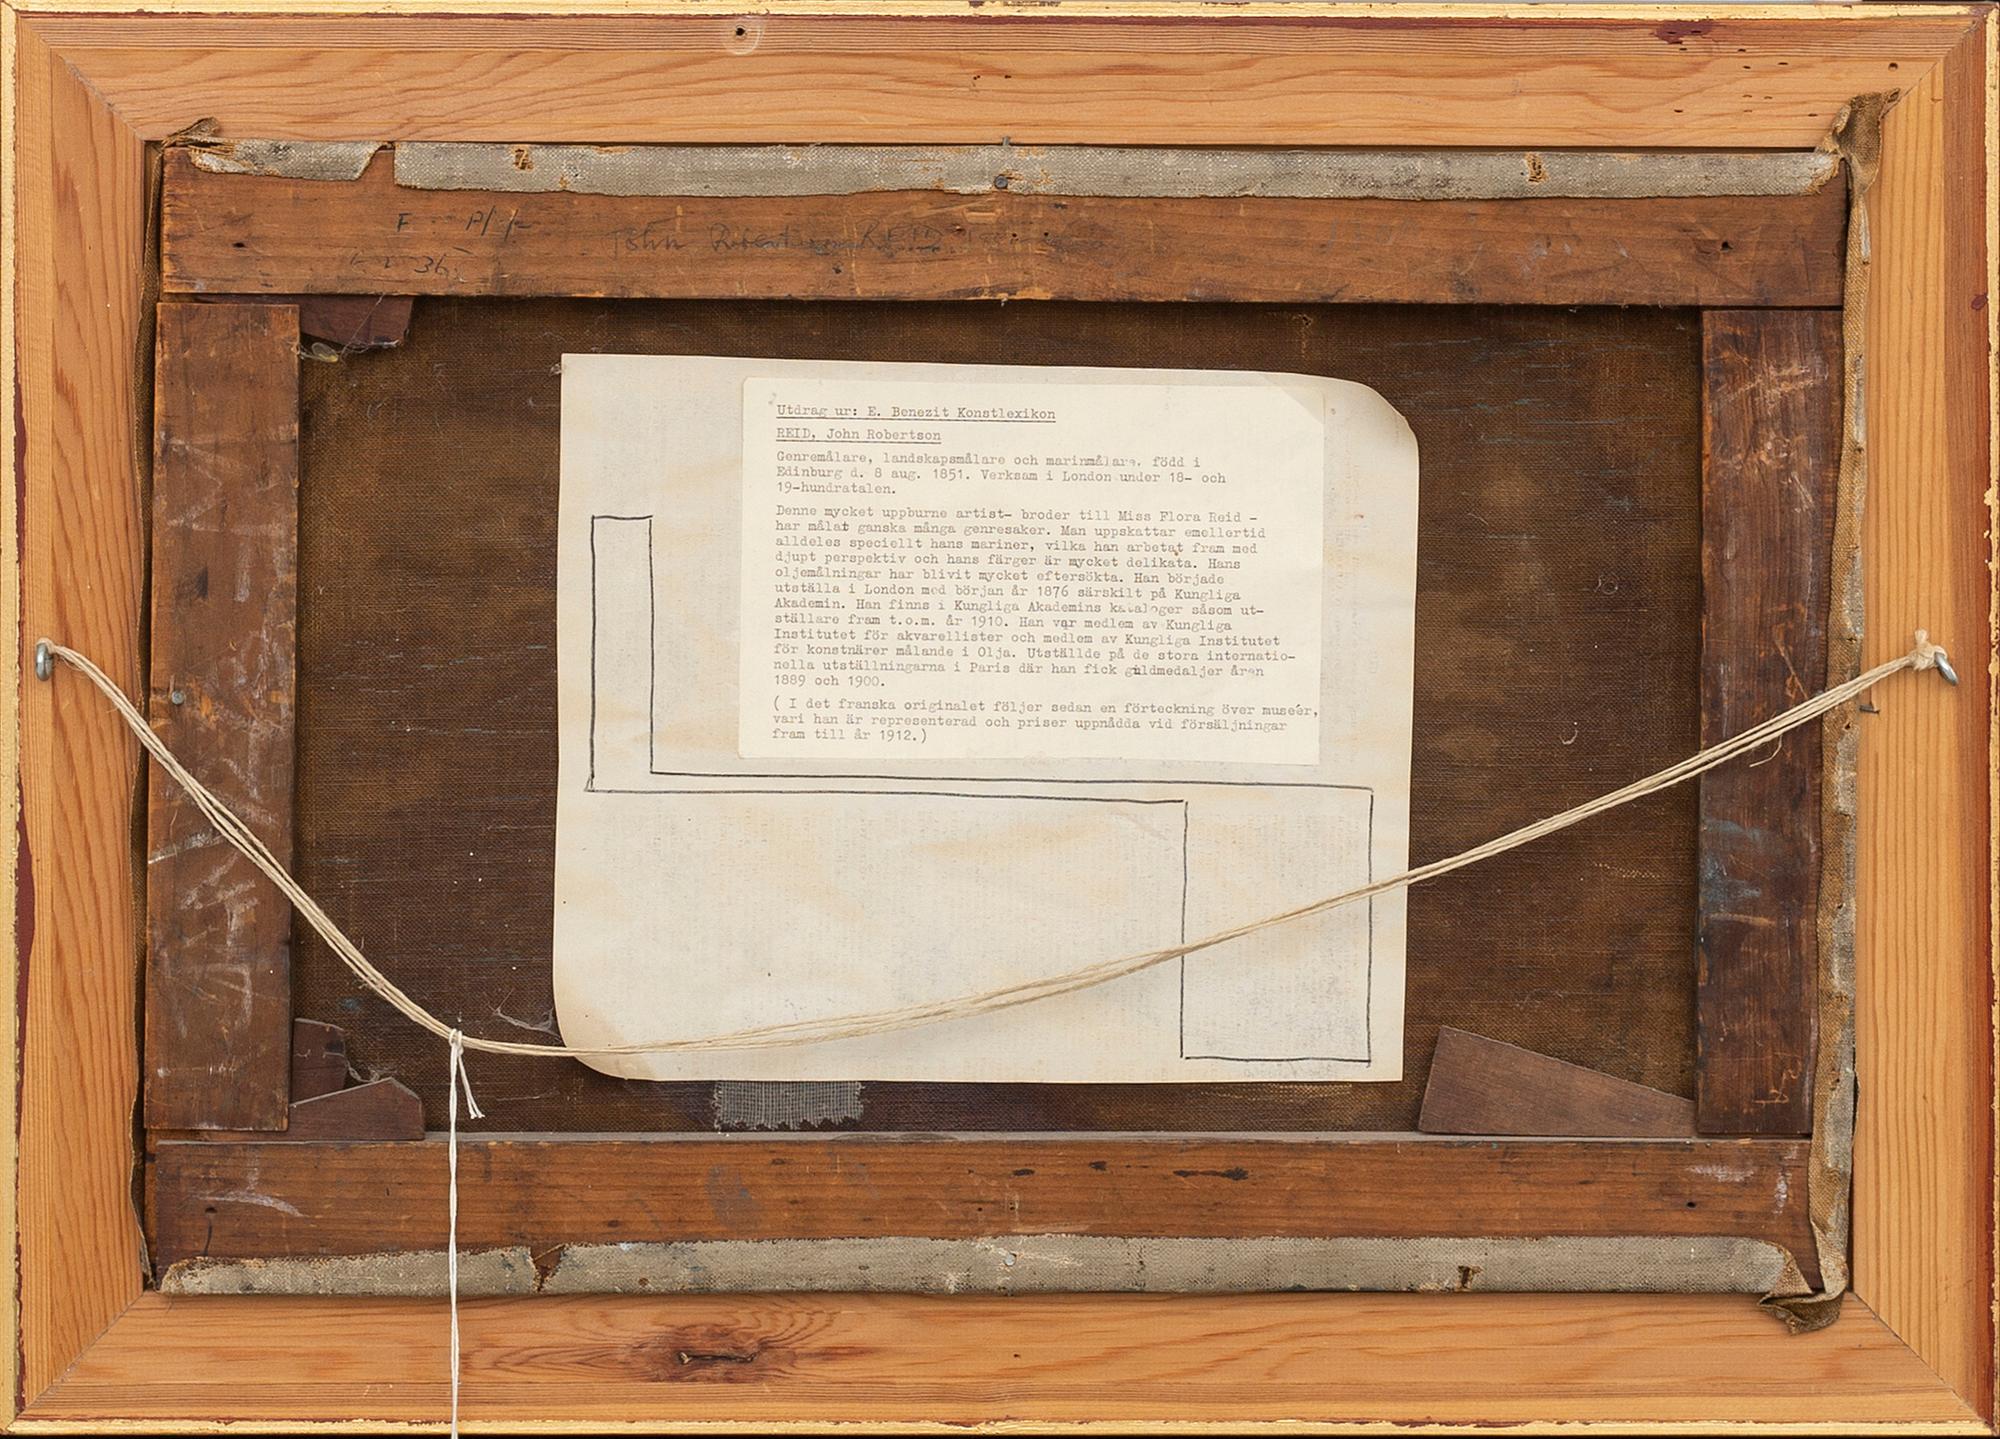 John
REID
Utdrag ur: E. Benezit Konstlexikon
REID, John Robertson
Genremålare, landskapsmålare och marinmålare. född i
Edinburg d. 8 aug. 1851. Verksam i London under 18- och
19-hundratalen.
Denne mycket uppburne artist- broder till Miss Flora Reid -
har målat ganska många genresaker. Man uppskattar emellertid
alldeles speciellt hans mariner, vilka han arbetat fram med
djupt perspektiv och hans färger är mycket delikata. Hans
oljemålningar har blivit mycket eftersökta. Han började
utställa i London med början år 1876 särskilt på Kungliga
Akademin. Han finns i Kungliga Akademins kataloger såsom ut-
ställare fram t.o.m. år 1910. Han var medlem av Kungliga
Institutet för akvarellister och medlem av Kungliga Institutet
för konstnärer målande i Olja. Utställde på de stora internatio-
nella utställningarna i Paris där han fick guldmedaljer åren
1889 och 1900.
( I det franska originalet följer sedan en förteckning över museér,
vari han är representerad och priser uppnådda vid försäljningar
fram till år 1912.)